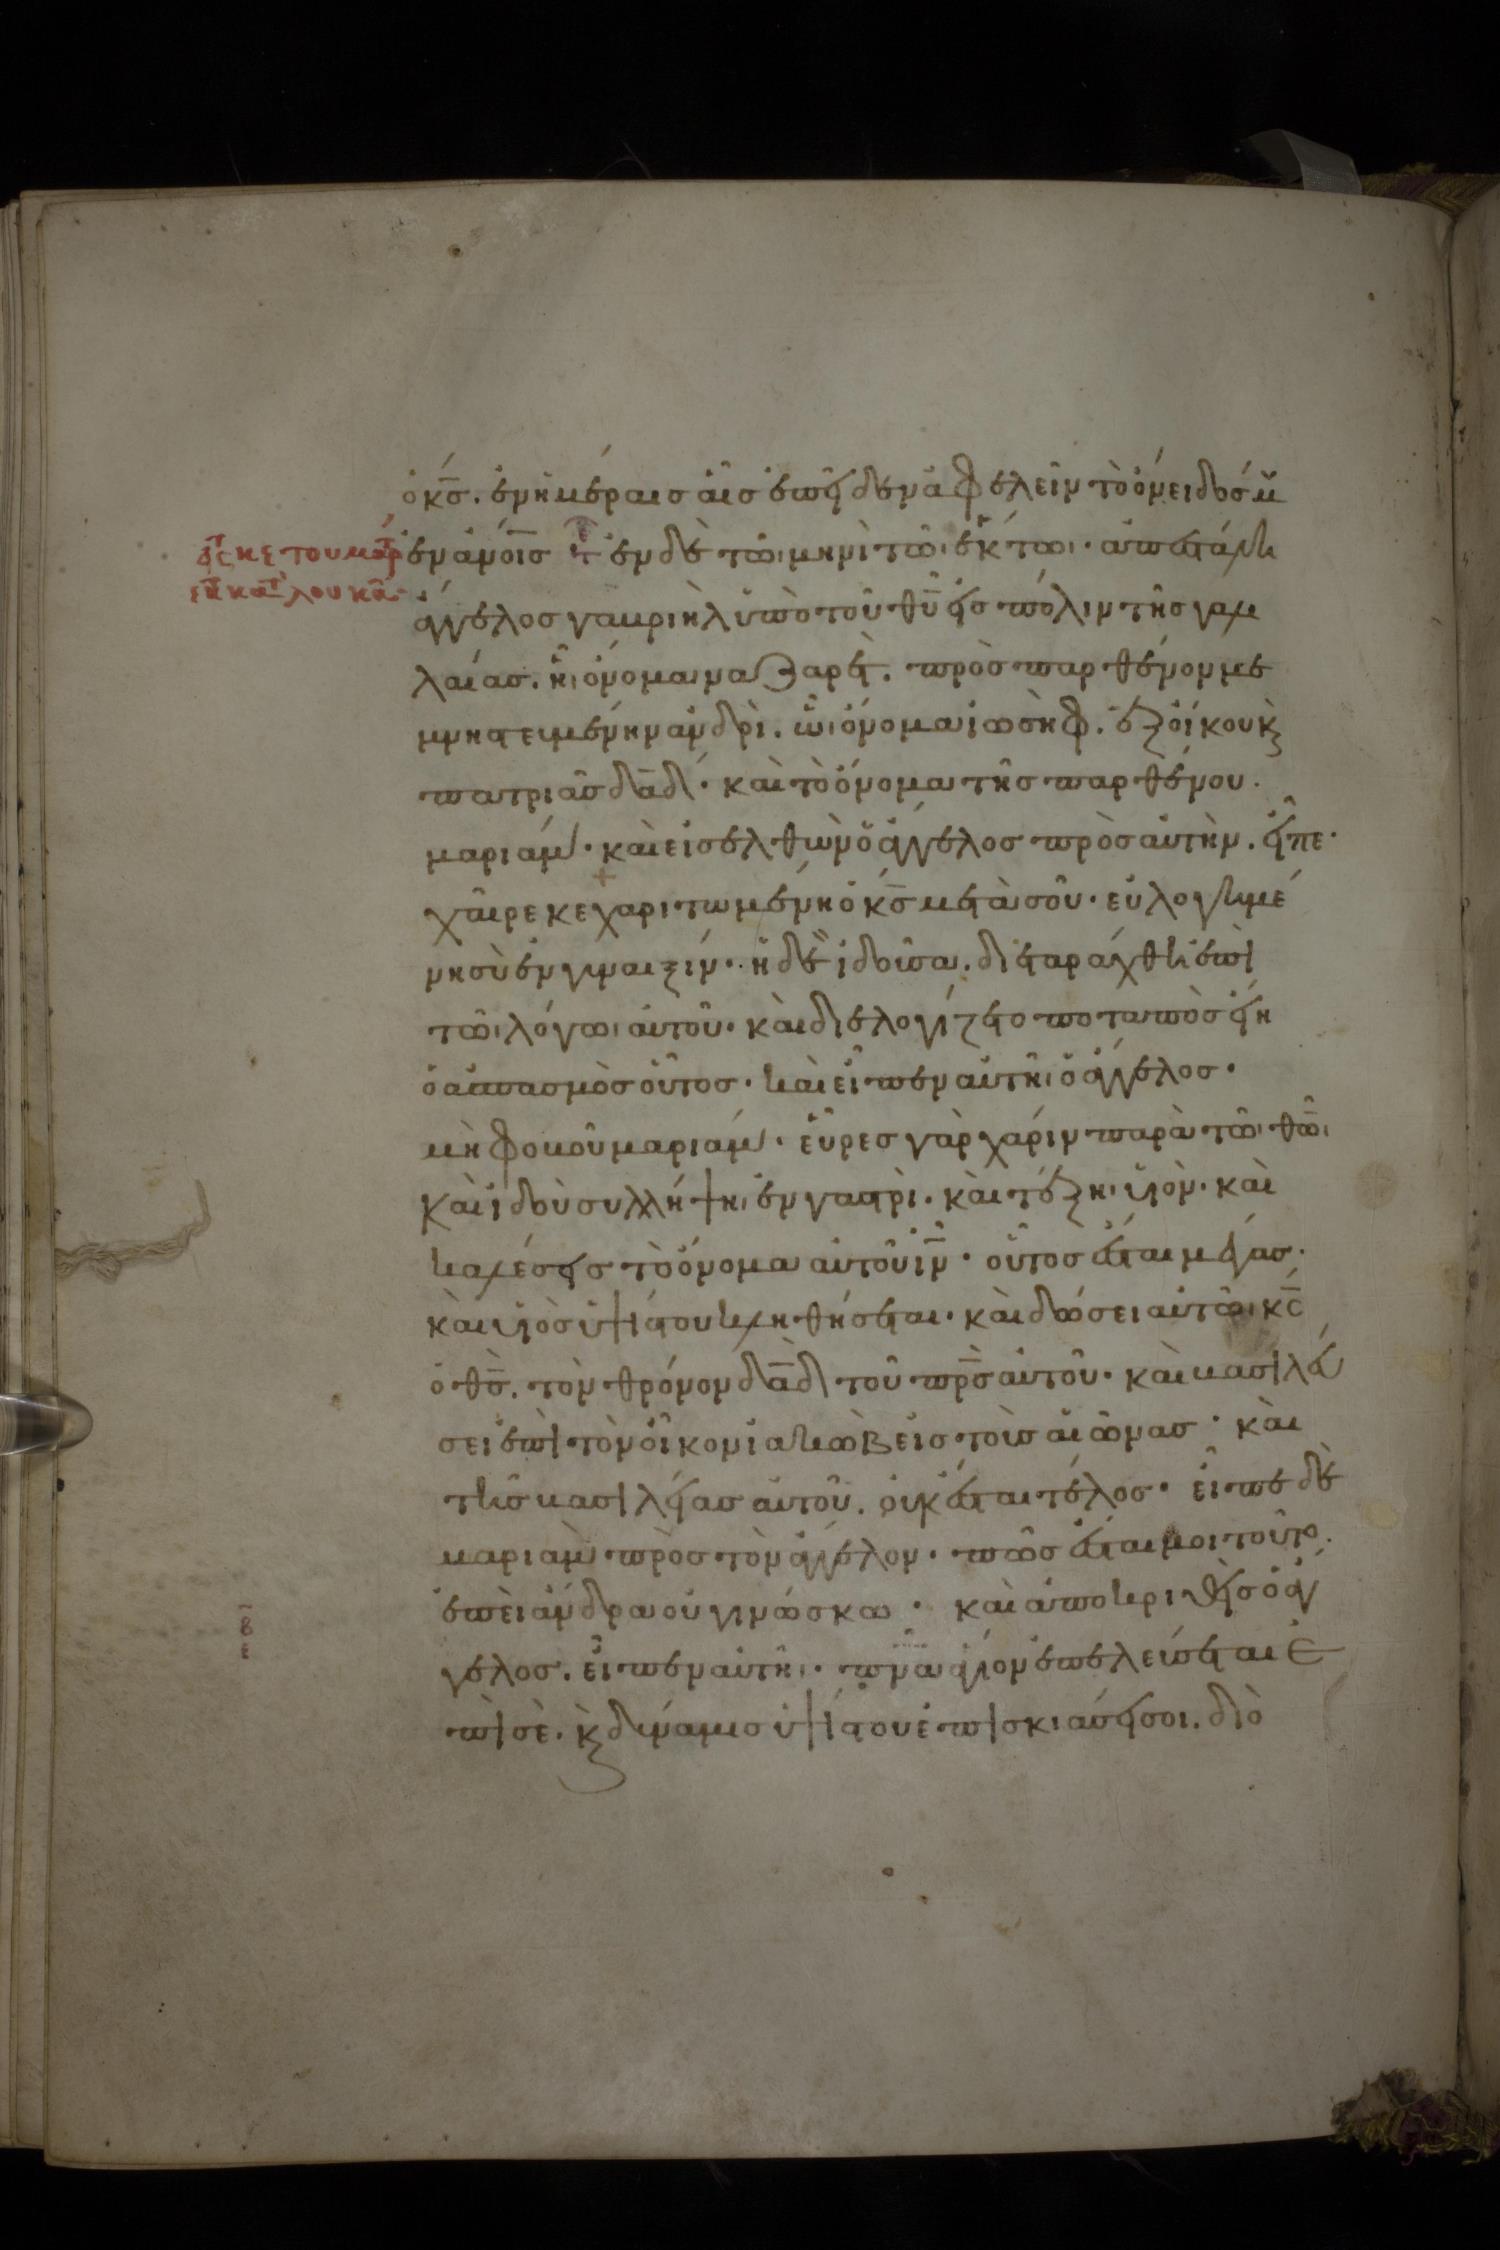 ὁ κ̅σ̅. ἐν ἡμέραισ αἷσ ἐπεῖδεν ἀφελεῖν τὸ ὄνειδόσ μου
ἐν ἀν̅ο̅ισ ἐν δὲ τῶι μηνὶ τῶι ἕκτωι· ἀπεστάλη
ἄγγελοσ γαβριὴλ ὑπὸ τοῦ θ̅υ̅ εἰσ πόλιν τῆσ γαλι
λαίασ. ἧι ὄνομα ναζαρέτ. πρὸσ παρθένον με
μνηστευμένην ἀνδρὶ. ὧι ὄνομα ἰωσὴφ. ἐξ οἴκου κ̀
πατριᾶσ δ̅α̅δ̅· καὶ τὸ ὄνομα τῆσ παρθένου.
μαριάμ· καὶ εἰσελθὼν ὁ ἄγγελοσ πρὸσ αὐτὴν. εἶπε·
χαῖρε κεχαριτωμένη ὁ κ̅σ̅ μετὰ σοῦ· εὐλογημέ
νη σὺ ἐν γυναιξίν· ἡ δὲ ἰδοῦσα. διεταράχθη ἐπὶ
τῶι λόγωι αὐτοῦ· καὶ διελογίζετο ποταπὸσ εἴη
ὁ ἀσπασμὸσ οὗτοσ· καὶ εἶπεν αὐτῆι ὁ ἄγγελοσ·
μὴ φοβοῦ μαριάμ· εὗρεσ γὰρ χάριν παρὰ τῶι θ̅ω̅ι
καὶ ἰδοὺ συλλήψηι ἐν γαστρὶ. καὶ τέξηι υἱὸν· καὶ
καλέσεισ τὸ ὄνομα αὐτοῦ ι̅ν̅· οὗτοσ ἔσται μέγασ·
καὶ υἱὸσ ὑψίστου κληθήσεται· καὶ δώσει αὐτῶι κ̅σ̅
ὁ θ̅σ̅. τὸν θρόνον δ̅α̅δ̅ τοῦ π̅ρ̅σ̅ αὐτοῦ· καὶ βασιλεύ
σει ἐπὶ τὸν οἶκον ἰακὼβ εἰσ τοὺσ αἰῶνασ· καὶ
τῆσ βασιλείασ αὐτοῦ. οὐκ ἔσται τέλοσ· εἶπε δὲ
μαριὰμ πρὸσ τὸν ἄγγελον· πῶσ ἔσται μοι τοῦτο.
ἐπεὶ ἄνδρα οὐ γινώσκω· καὶ ἀποκριθεὶσ ὁ ἄγ
γελοσ. εἶπεν αὐτῆι· π̅ν̅α̅ ἅγιον ἐπελεύσεται ἐ
πὶ σὲ. κ̀ δύναμισ ὑψίστου ἐπισκιάσει σοι. διὸ